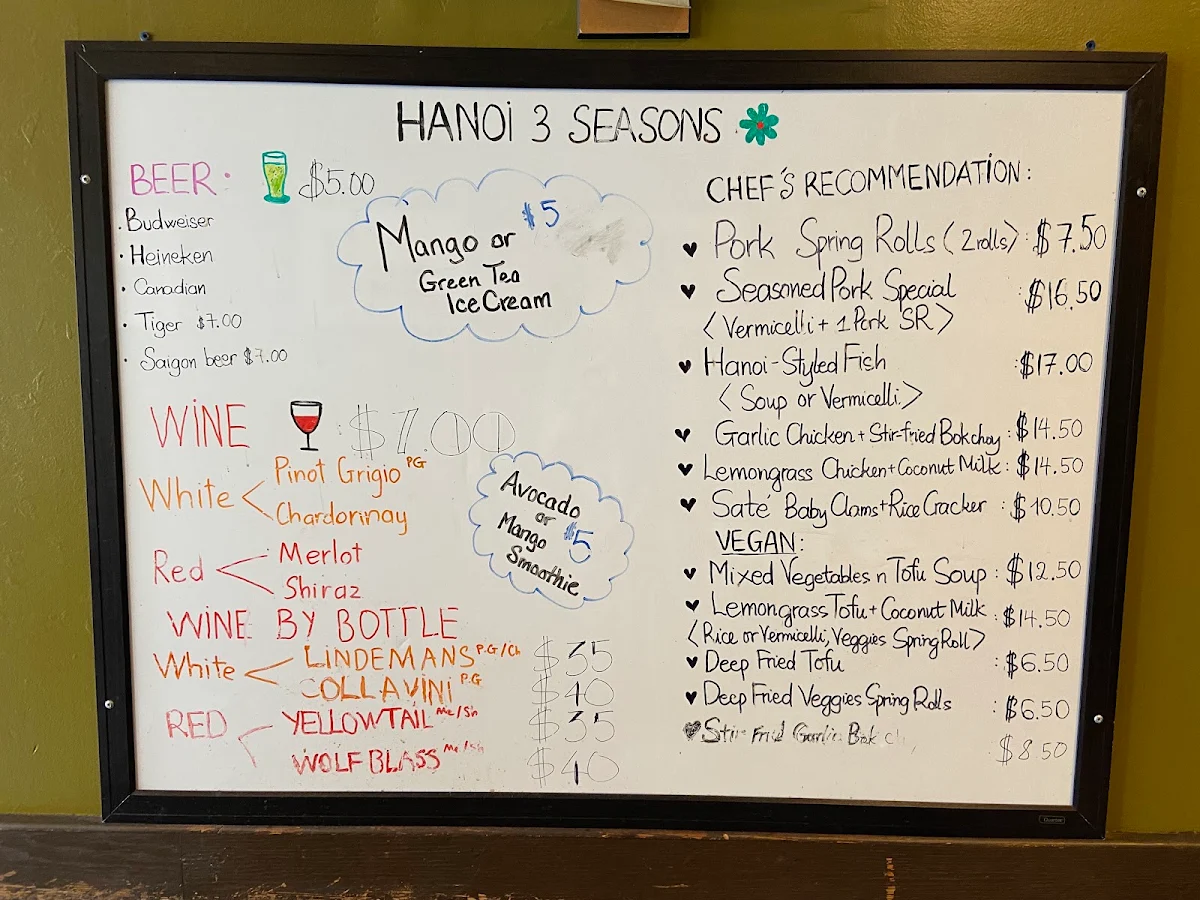 HANOi 3 SEASONS
BEER: $5.00
· Budweiser
· Heineken
· Canadian
· Tiger $7.00
· Saigon beer $7.00
Mango or $5
Green Tea
Ice Cream
WiNE : $7.00
White < Pinot Grigio PG
Chardorinay
Red < Merlot
Shiraz
WiNE BY BOTTLE
White < LiNDEMANS P.G/Ch $35
COLLAViNi P.G $40
RED < YELLOWTAIL Me/Sh $35
WOLF BLASS Me/Sh $40
Avocado
or
Mango $5
Smoothie
CHEF'S RECOMMENDATiON:
♥ Pork Spring Rolls (2 rolls): $7.50
♥ Seasoned Pork Special : $16.50
<Vermicelli + 1 Pork SR>
♥ Hanoi-Styled Fish : $17.00
<Soup or Vermicelli>
♥ Garlic Chicken + Stir-fried Bokchoy : $14.50
♥ Lemongrass Chicken + Coconut Milk : $14.50
♥ Saté Baby Clams + Rice Cracker : $10.50
VEGAN:
♥ Mixed Vegetables n Tofu Soup : $12.50
♥ Lemongrass Tofu + Coconut Milk : $14.50
<Rice or Vermicelli, Veggies Spring Roll>
♥ Deep Fried Tofu : $6.50
♥ Deep Fried Veggies Spring Rolls : $6.50
♥ Stir Fried Garlic Bok ch $8.50